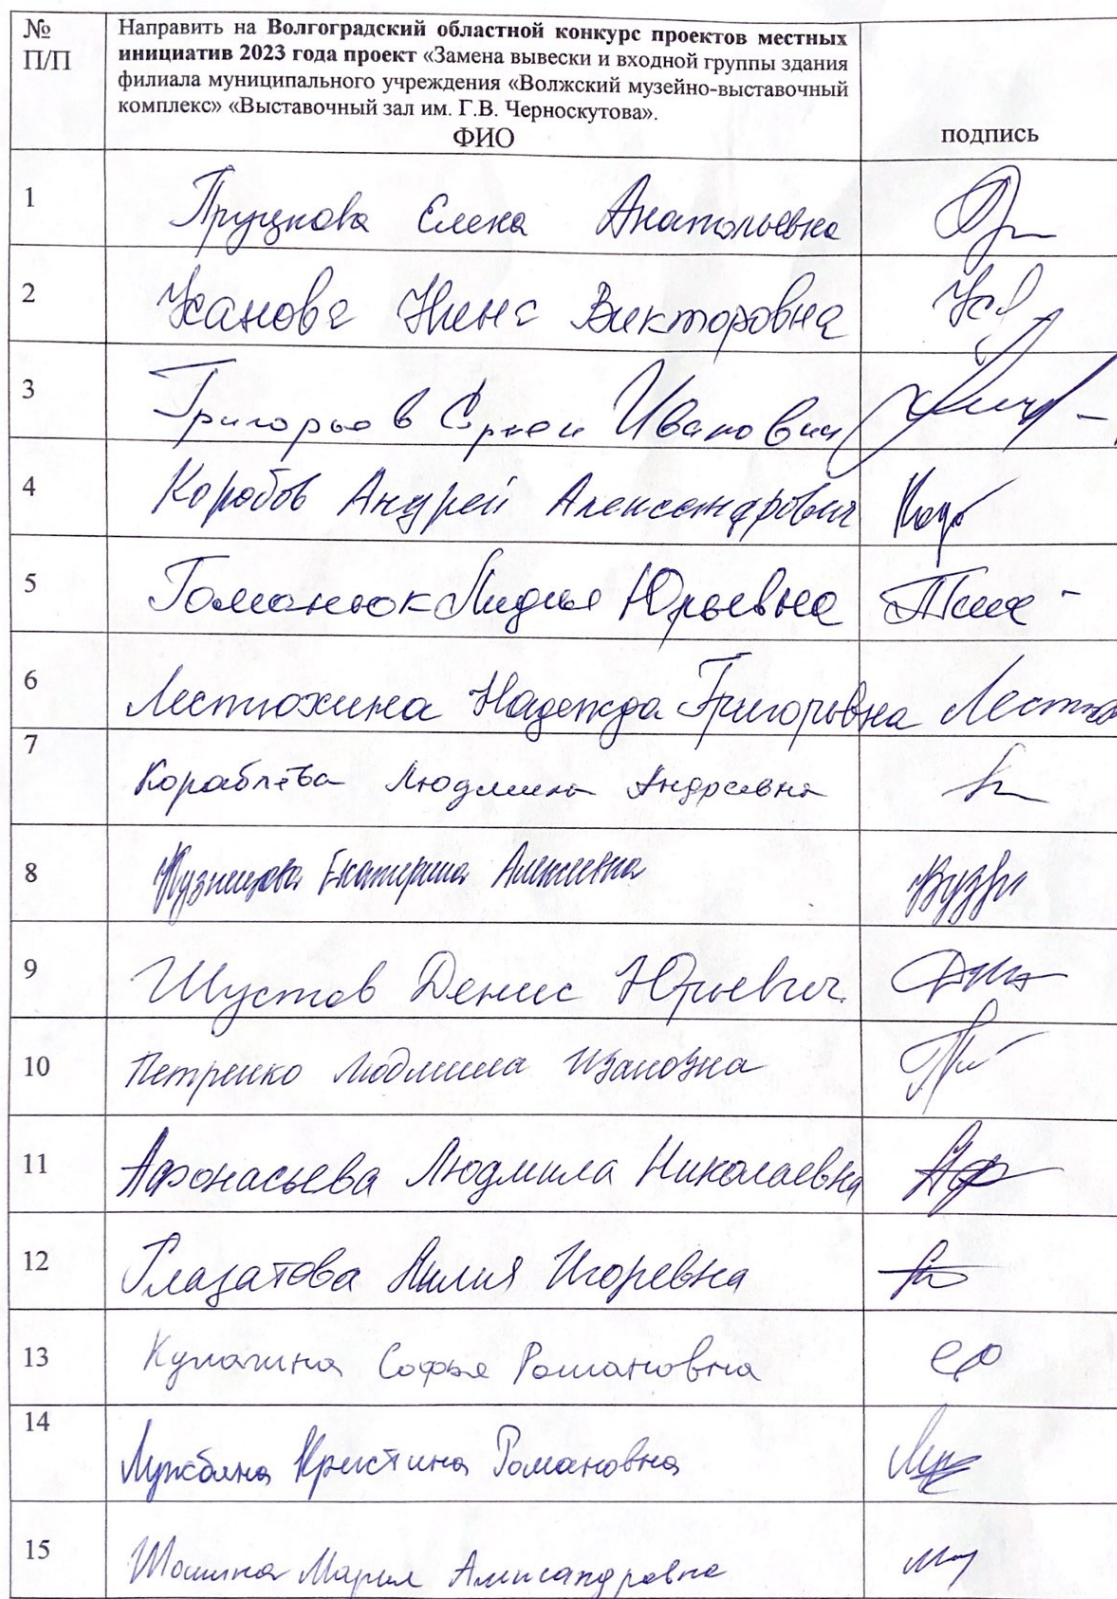 №
П/П
Направить на Волгоградский областной конкурс проектов местных
инициатив 2023 года проект «Замена вывески и входной группы здания
филиала муниципального учреждения «Волжский музейно-выставочный
комплекс» «Выставочный зал им. Г.В. Черноскутова».
ФИО
подпись
1 Пруцкова Елена Анатольевна
2 Усанова Нина Викторовна
3 Григорьев Сергей Иванович
4 Коробов Андрей Александрович
5 Гоманюк Лидия Юрьевна
6 Лестюхина Надежда Григорьвна
7 Кораблёва Людмила Андреевна
8 Кузнецова Екатерина Алексеевна
9 Шустов Денис Юрьевич
10 Петренко Людмила Ивановна
11 Афонасьева Людмила Николаевна
12 Глазатова Лилия Игоревна
13 Кулагина Софья Романовна
14 Кристина Романовна
15 Мария Александровна